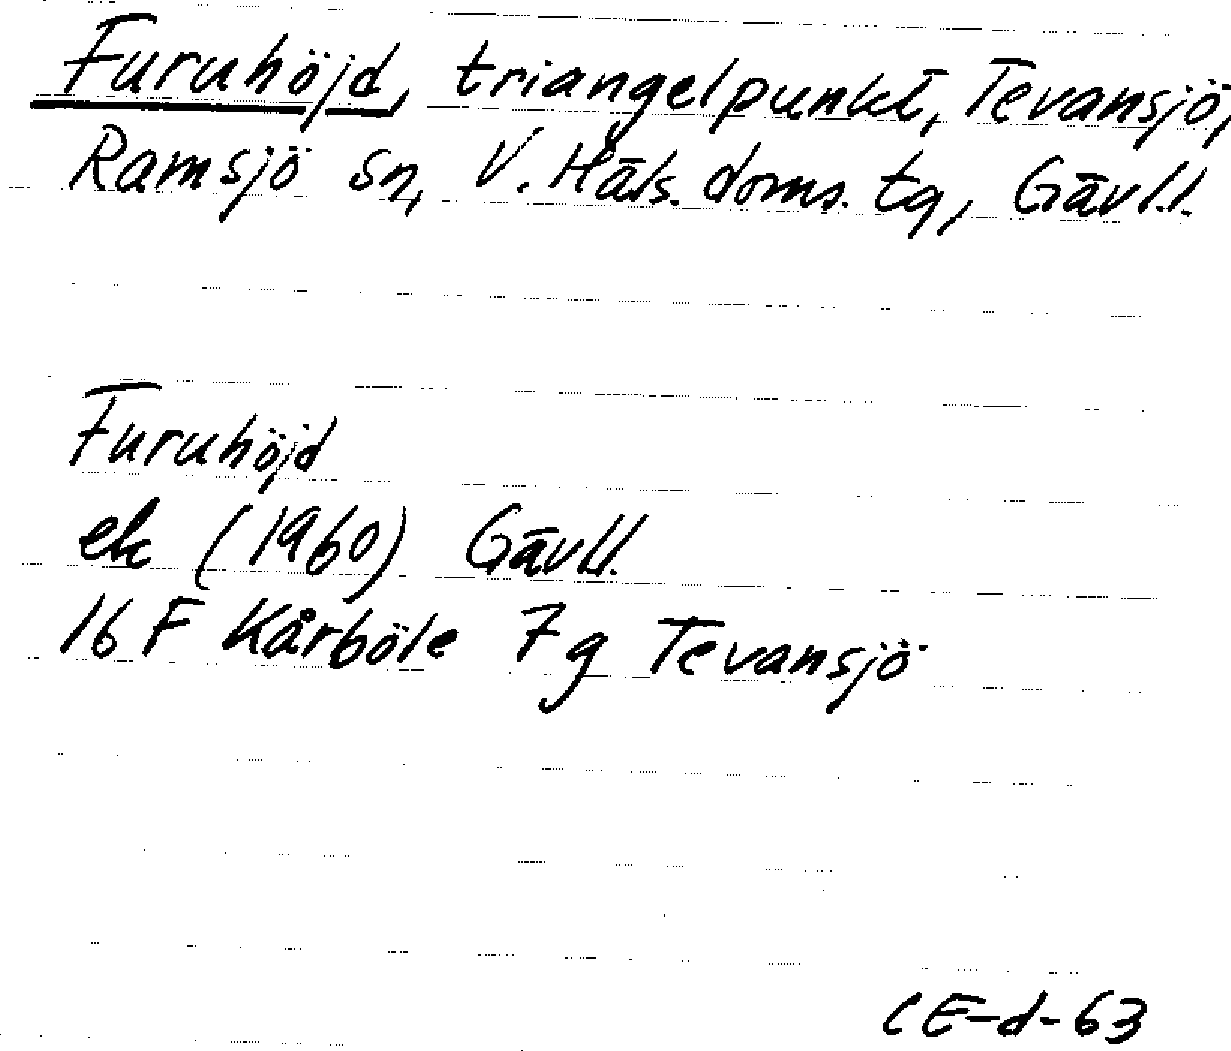 Furuhöjd, triangelpunkt, Tevansjö,
Ramsjö sn, V. Häls. doms. tg, Gävl.l.
Furuhöjd
ek (1960) Gävl.l.
16 F Kårböle 7 g Tevansjö
CE-d-63